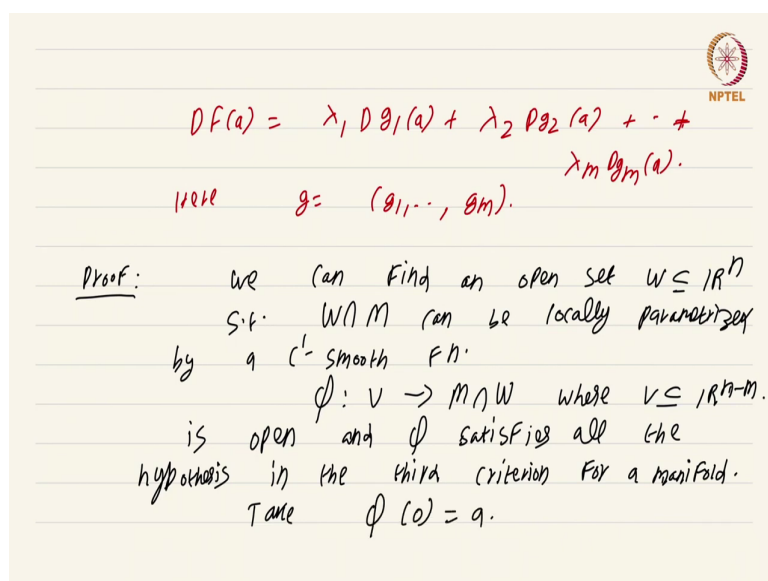 NPTEL
DF(a) = λ₁ Dg₁(a) + λ₂ Dg₂(a) + ·· +
λₘ Dgₘ(a).
Here g = (g₁,··, gₘ).
Proof: we can find an open set W ⊆ ℝⁿ
s.t. W∩M can be locally parametrized
by a C¹-smooth Fn.
φ: V → M∩W where V ⊆ ℝⁿ⁻ᵐ.
is open and φ satisfies all the
hypothesis in the third criterion for a manifold.
Take φ(0) = a.